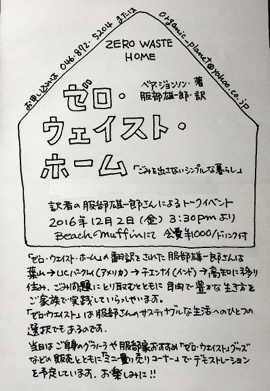 お申し込みは 046-892-5204 または organic_planet@yahoo.co.jp
ZERO WASTE
HOME
ベア・ジョンソン・著
服部雄一郎・訳
ゼロ・
ウェイスト・
ホーム
「ごみを出さないシンプルな暮らし」
訳者の服部雄一郎さんによるトークイベント
2016年12月2日(金) 3:30pmより
Beach Muffinにて 会費¥1000/ドリンク付
「ゼロ・ウェイスト・ホーム」が翻訳をされた服部雄一郎さんは
葉山→UCバークレイ(アメリカ)→チェンナイ(インド)→高知に移り
住み、ごみ問題にとり組むとともに自由で豊かな生き方を
ご家族で実践していらっしゃいます。
「ゼロ・ウェイスト」は服部さんのサスティナブルな生活へのひとつの
選択でもあるのです。
当日はご自身のグラノーラや服部家おすすめ「ゼロ・ウェイスト」グッズ
などの販売とともに「ミニ量り売りコーナー」でデモストレーション
を予定しています。お楽しみに!!